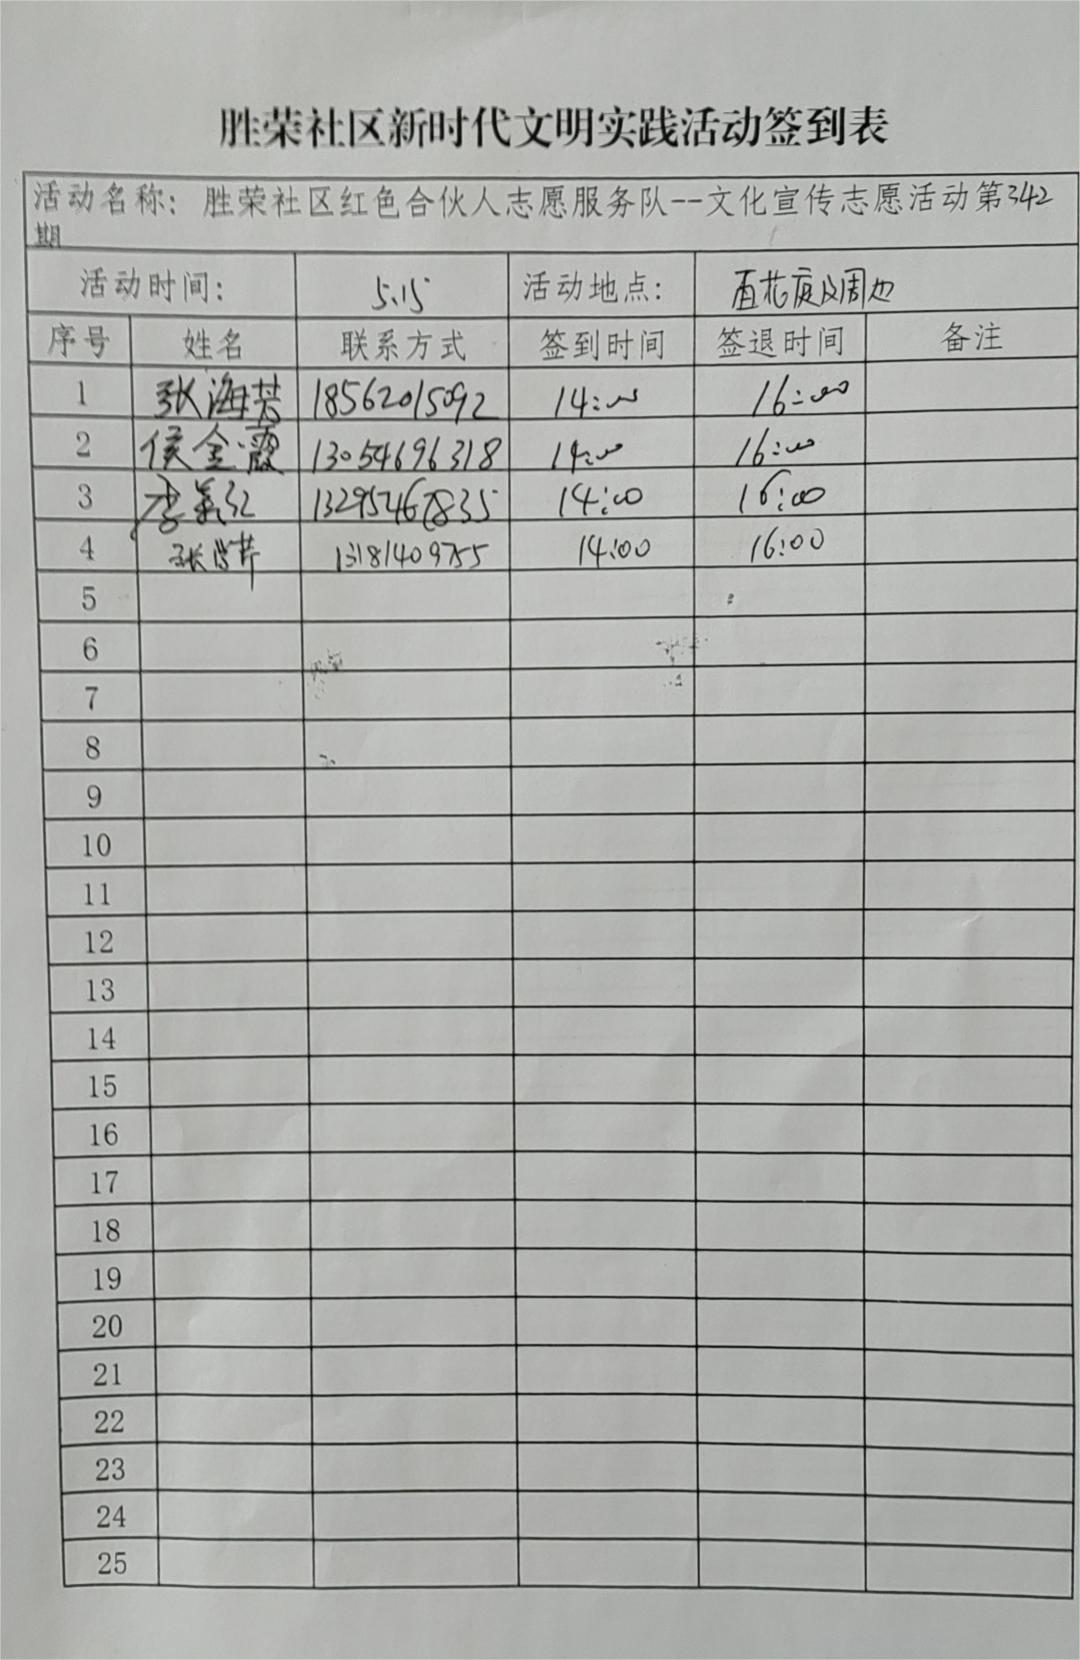 胜荣社区新时代文明实践活动签到表
活动名称：胜荣社区红色合伙人志愿服务队--文化宣传志愿活动第342
期
活动时间： 5.15 活动地点： 百花庭及周边
序号 姓名 联系方式 签到时间 签退时间 备注
1 张海芳 18562015092 14:00 16:00
2 侯金霞 13054696318 14:00 16:00
3 李 红 13295467835 14:00 16:00
4 张 芹 13181409755 14:00 16:00
5
6
7
8
9
10
11
12
13
14
15
16
17
18
19
20
21
22
23
24
25